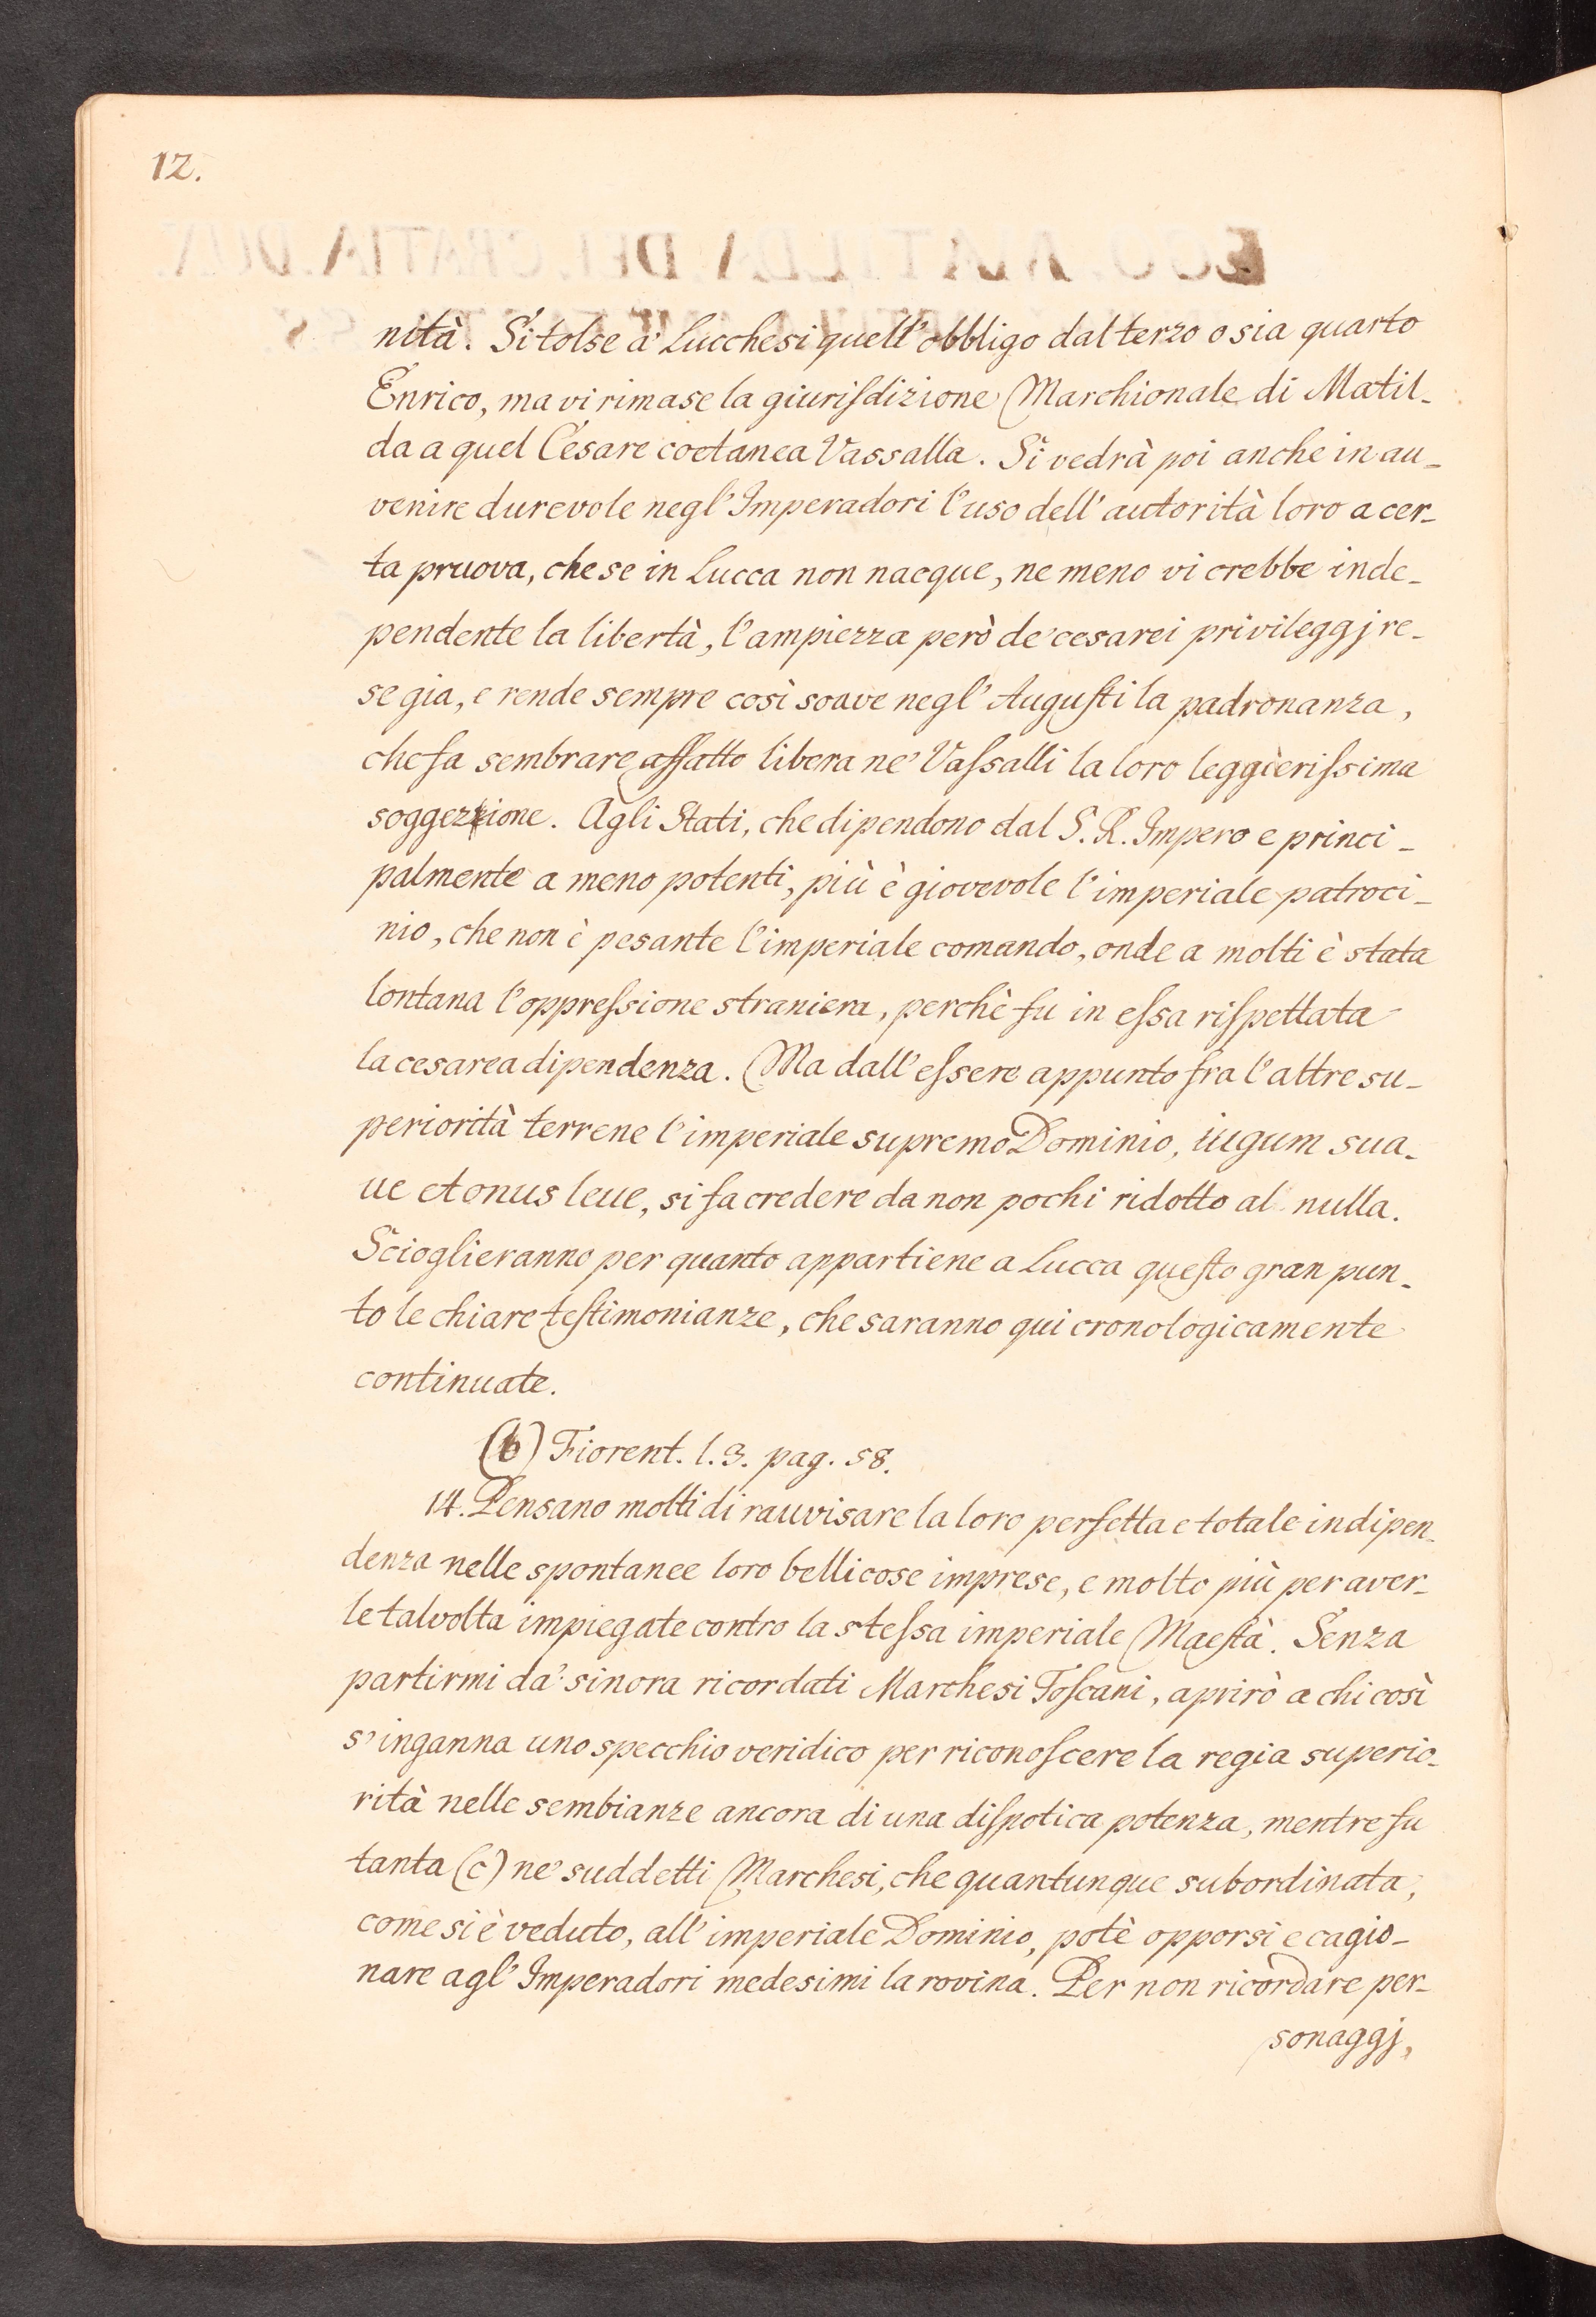 12.
nità. Si tolse a' Lucchesi quell'obbligo dal terzo o sia quarto
Enrico, ma vi rimase la giurisdizione Marchionale di Matil-
da a quel Cesare coetanea Vassalla. Si vedrà poi anche in au-
venire durevole negl'Imperadori l'uso dell'autorità loro a cer-
ta pruova, che se in Lucca non nacque, ne meno vi crebbe inde-
pendente la libertà, l'ampiezza però de' cesarei privileggj re-
se gia, e rende sempre così soave negl'Augusti la padronanza,
che fa sembrare affatto libera ne' Vassalli la loro leggierissima
soggezione. Agli Stati, che dipendono dal S. R. Impero e princi-
palmente a meno potenti, più è giovevole l'imperiale patroci-
nio, che non è pesante l'imperiale comando, onde a molti è stata
lontana l'oppressione straniera, perchè fu in essa rispettata
la cesarea dipendenza. Ma dall'essere appunto fra l'altre su-
periorità terrene l'imperiale supremo Dominio, iugum sua-
ue et onus leue, si fa credere da non pochi ridotto al nulla.
Scioglieranno per quanto appartiene a Lucca questo gran pun-
to le chiare testimonianze, che saranno qui cronologicamente
continuate.
(b) Fiorent. l. 3. pag. 58.
14. Pensano molti di rauvisare la loro perfetta e totale indipen-
denza nelle spontanee loro bellicose imprese, e molto più per aver-
le talvolta impiegate contro la stessa imperiale Maestà. Senza
partirmi da' sinora ricordati Marchesi Toscani, aprirò a chi così
s'inganna uno specchio veridico per riconoscere la regia superio-
rità nelle sembianze ancora di una dispotica potenza, mentre fu
tanta (c) ne' suddetti Marchesi, che quantunque subordinata,
come si è veduto, all'imperiale Dominio, potè opporsi e cagio-
nare agl'Imperadori medesimi la rovina. Per non ricordare per-
sonaggj,